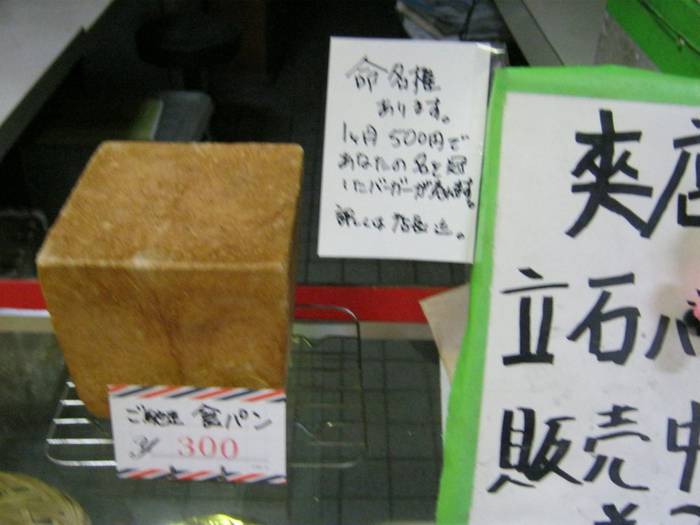 命名権
あります。
1ヶ月 500円で
あなたの名を冠
したバーガーが売れます。
詳しくは店長迄。
食パン
300
立石
販売中